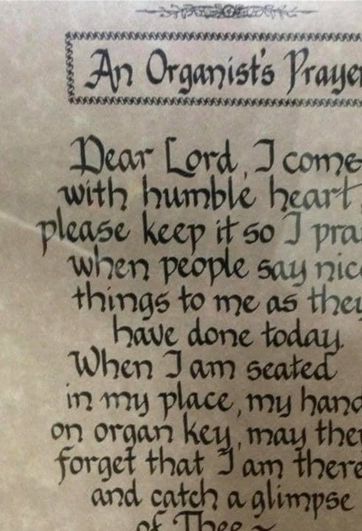 An Organist's Prayer
Dear Lord, I come
with humble heart,
please keep it so I pra
when people say nice
things to me as they
have done today.
When I am seated
in my place, my hand
on organ key, may the
forget that I am there
and catch a glimpse
of Thee ~